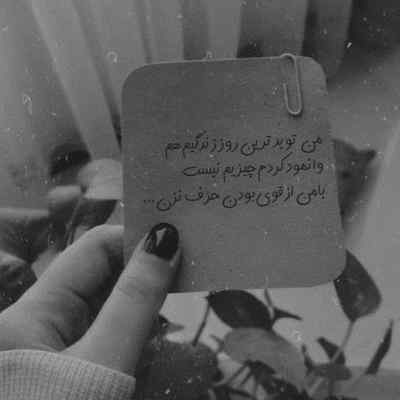 من تو بد ترین روز زندگیم هم
وانمود کردم چیزیم نیست
بامن از قوی بودن حرف نزن ...